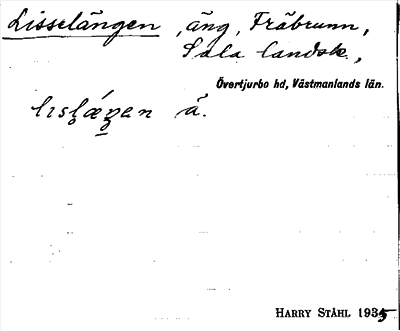 Lisselängen, äng, Fräbrunn,
Sala landsk.,
Övertjurbo hd, Västmanlands län.
å.
HARRY STÅHL 1935